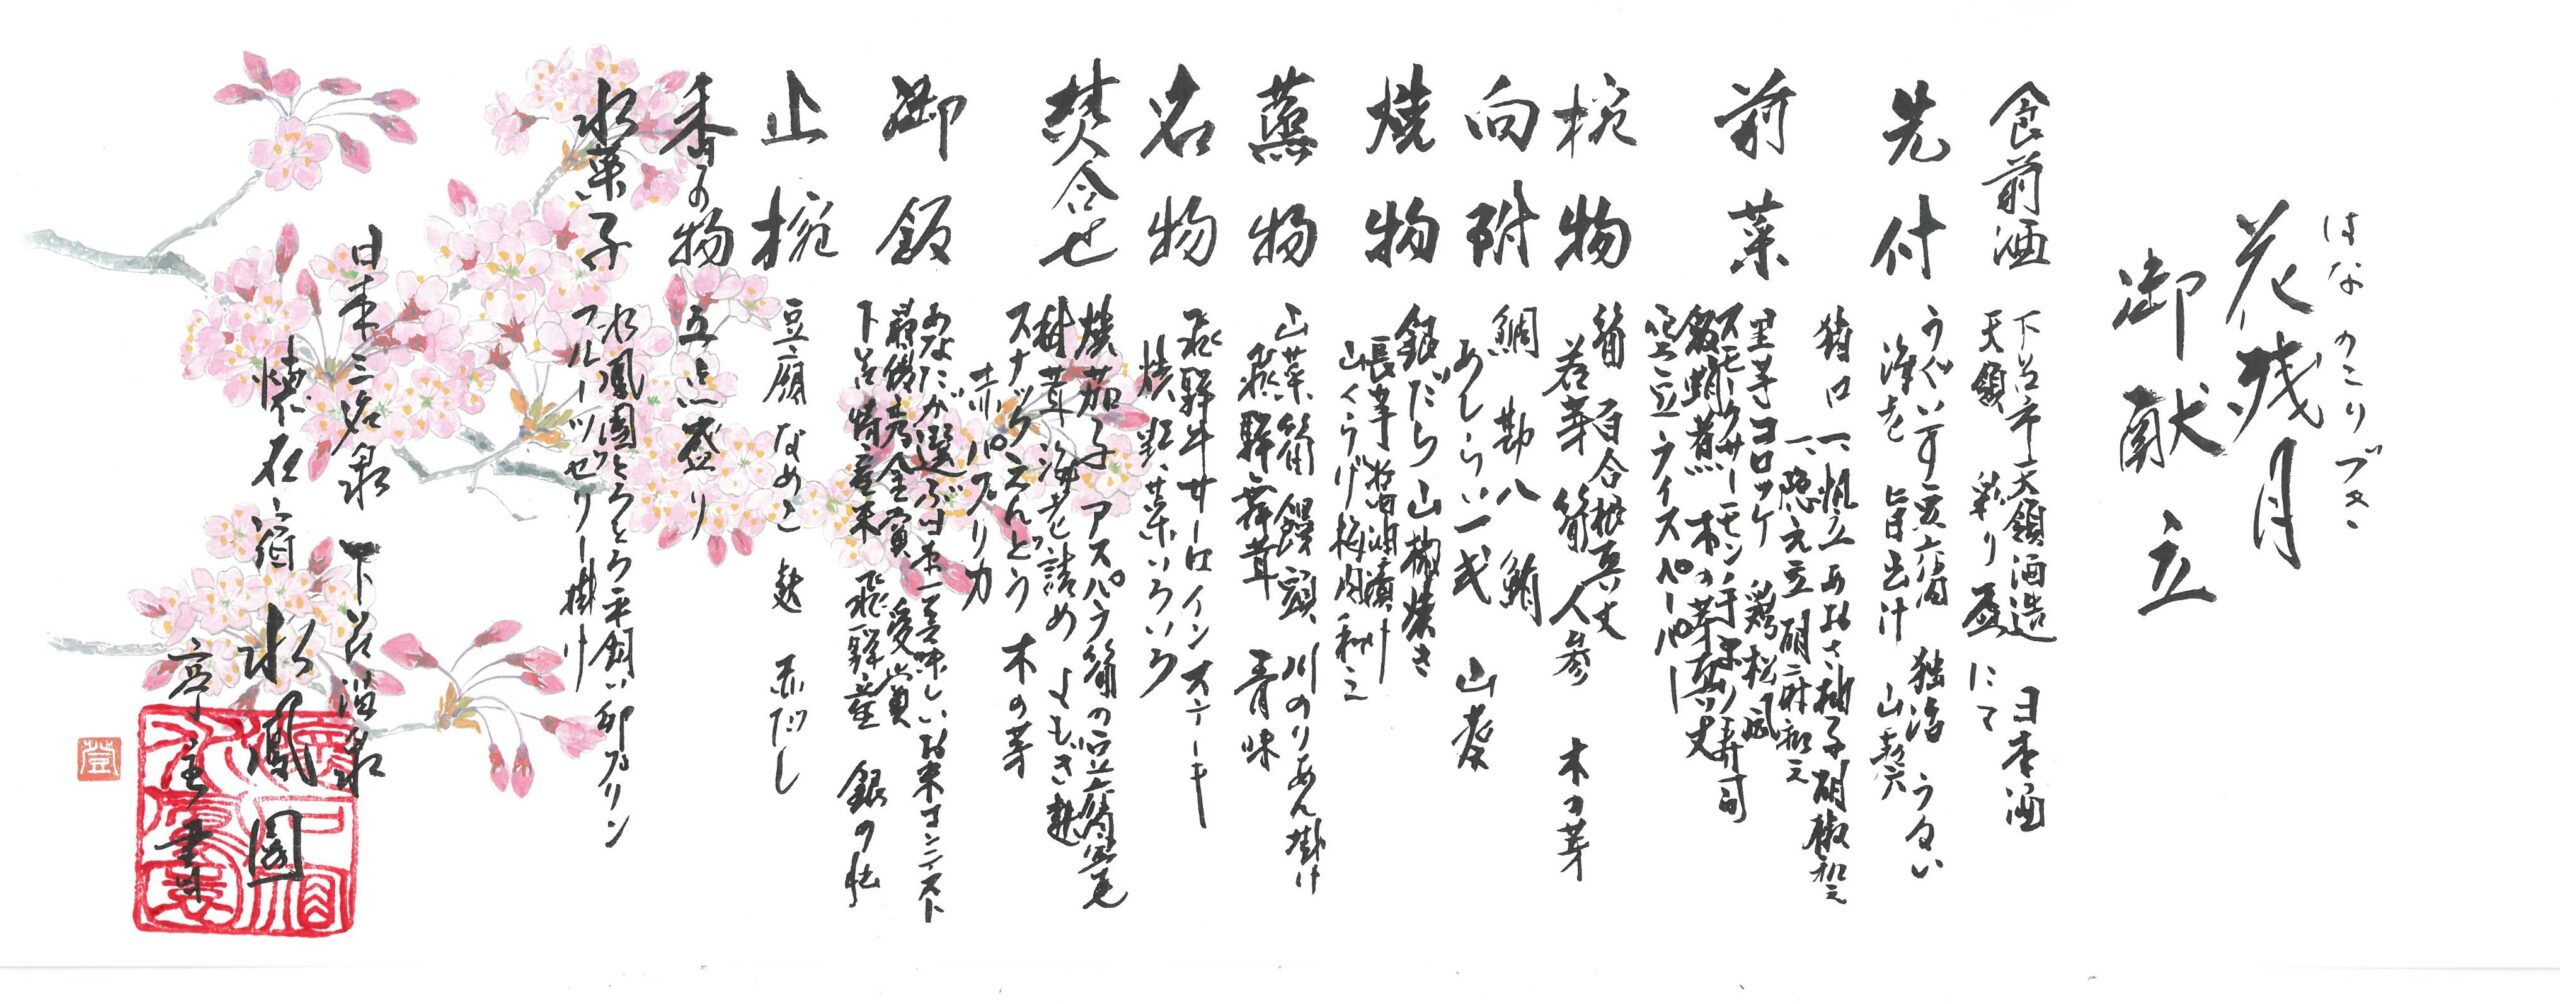 はなのこりづき
花残月
御献立
食前酒
下呂市 天領酒造 日本酒
天領 彩り盃にて
先付
うぐいす豆腐 独活 うるい
浄を 旨出汁 山葵
前菜
猪口 一、帆立あおさ柚子胡椒和え
一、隠元豆胡麻和え
里芋コロッケ 鶏松風
スモークサーモン手まり寿司
飯蛸煮 木の芽真丈
空豆ライスペーパー
椀物
筍 百合根真丈
若芽 筍 人参 木の芽
向附
鯛 勘八 鮪
あしらい一式 山葵
焼物
銀だら山椒焼き
長芋醤油漬け
山くらげ梅肉和え
蒸物
山菜筍饅頭 川のりあん掛け
飛騨舞茸 青味
名物
飛騨牛サーロインステーキ
焼野菜いろいろ
焚合せ
焼茄子 アスパラ 筍の
椎茸海老詰め よもぎ麸
スナックえんどう 木の芽
赤パプリカ
御飯
あなたが選ぶ日本一美味しいお米コンテスト
最優秀金賞受賞 飛騨産
下呂特産米 銀の
止椀
豆腐 なめこ 麸 赤だし
香の物
五点盛り
水菓子
水鳳園とろとろ平飼い卵プリン
フルーツゼリー掛け
日本三名泉 下呂温泉
懐石宿 水鳳園
亭主 重
登